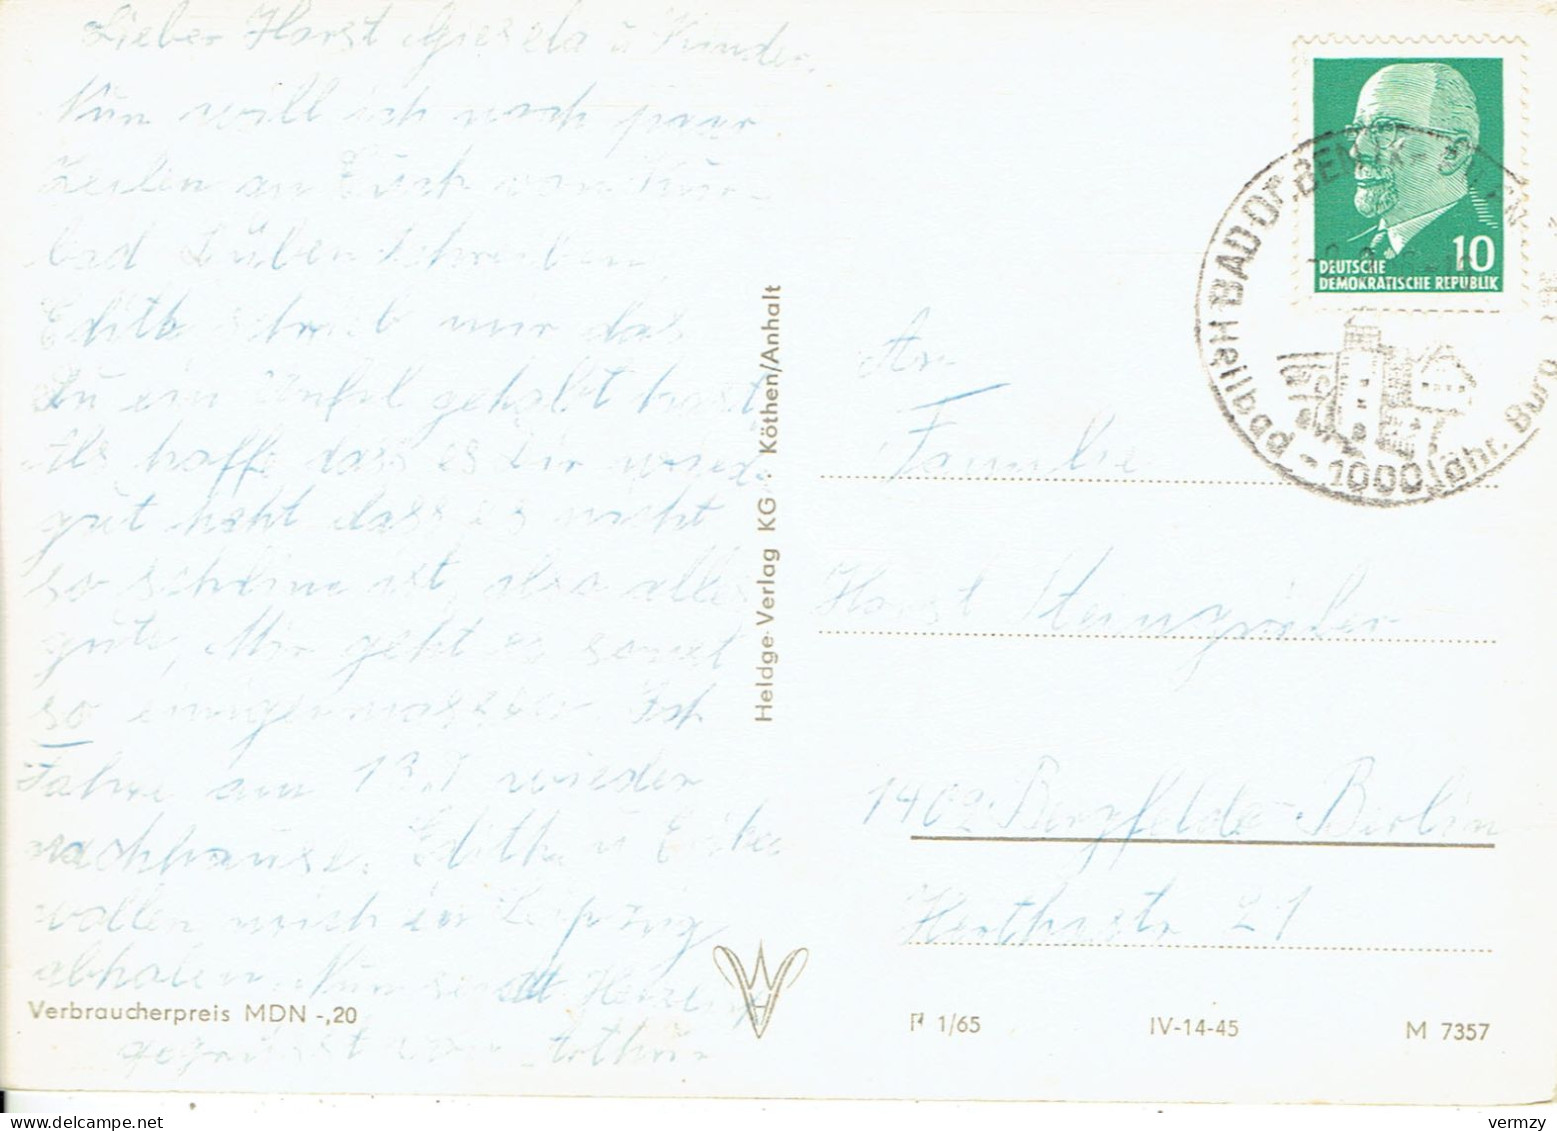 Lieber Horst Gisela u Kinder.
Nun will ich noch paar
Zeilen an Euch von Kur-
bad Düben schreiben
Edith schrieb mir das
du ein Unfal gehabt hast,
Ich hoffe dass es dir wieder
gut geht dass es nicht
so schlim ist, also alles
gute, Mir geht es sonst
so einigermassen Ich
Fahre am 13.7 wieder
nachhause. Edith u
wollen mich in Leipzig
abholen. Nun seit Herzl
gegrüsst von Arthur
Verbraucherpreis MDN -,20
Heldge-Verlag KG · Köthen/Anhalt
DEUTSCHE
DEMOKRATISCHE REPUBLIK
10
Heilbad - 1000 Jähr. Burg
An
Familie
Horst
1402 Bergfelde-Berlin
Herthastr 21
P 1/65
IV-14-45
M 7357
vermzy